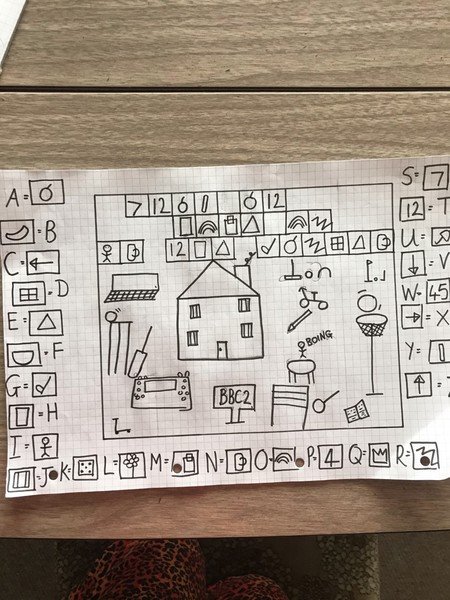 A=
= B
C=
= D
E=
= F
G=
= H
I=
= J
K=
L=
M=
N=
O=
P= 4
Q=
R=
S= 7
12 = T
U=
= V
W= 45
= X
Y=
7 12 12
12
BOING
BBC2